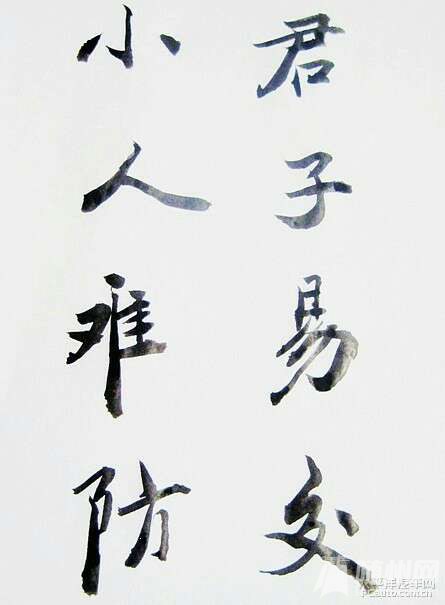 君子易交
小人难防
随州网
太平洋汽车网
PCauto.com.cn